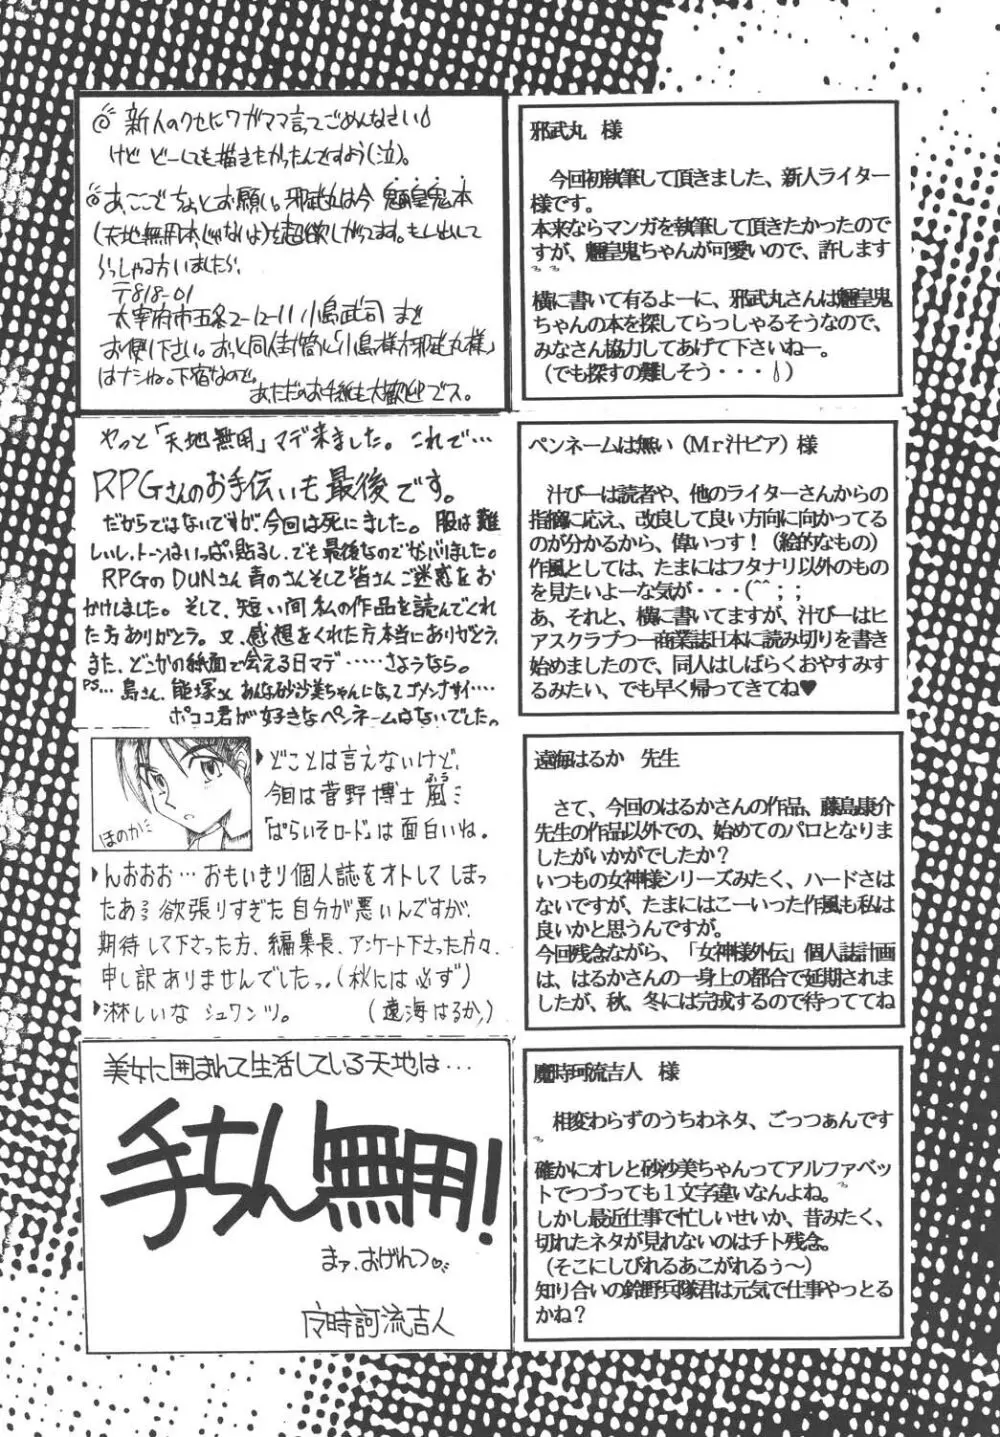 ◎ 新人のクセにワガママ言ってごめんなさい
けど どーしても描きたかったんですよう(泣)。
◎あ、ここでちょっとお願い。邪武丸は今 魎皇鬼本
(天地無用本じゃないよ)を超欲しがってます。もし出して
らっしゃる方いましたら、
〒818-01
太宰府市五条2-12-11 小島武司 まで
お便り下さい。おっと同人封筒に「小島様方邪武丸様」
はナシね。下宿なので。
あ、ただのお手紙も大歓迎でス。
邪武丸 様
今回初執筆して頂きました、新人ライター
様です。
本来ならマンガを執筆して頂きたかったので
すが、魎皇鬼ちゃんが可愛いので、許します
横に書いて有るよーに、邪武丸さんは魎皇鬼
ちゃんの本を探してらっしゃるそうなので、
みなさん協力してあげて下さいねー。
(でも探すの難しそう・・・)
やっと「天地無用」マデ来ました。これで…
RPGさんのお手伝いも最後です。
だからではないですが、今回は死にました。服は難
しいし、トーンはいっぱい貼るし、でも最後なのでがんばりました。
RPGのDUNさん 青のさん そして皆さん ご迷惑をお
かけしました。そして、短い間 私の作品を読んでくれ
た方ありがとう。又、感想をくれた方本当にありがとう。
また、どこかの紙面で会える日マデ……さようなら。
PS… 島さん、熊塚さん あんな砂沙美ちゃんになってゴメンナサイ……
ポココ君が好きなペンネームはないでした。
ペンネームは無い(Mr汁ビア)様
汁びーは読者や、他のライターさんからの
指摘に応え、改良して良い方向に向かってる
のが分かるから、偉いっす!(絵的なもの)
作風としては、たまにはフタナリ以外のもの
を見たいよーな気が・・・(^^;;
あ、それと、横に書いてますが、汁びーはヒ
アスクラブつー商業誌日本に読み切りを書き
始めましたので、同人はしばらくおやすみす
るみたい、でも早く帰ってきてね♥
ほのか
どことは言えないけど、
今回は菅野博士風ミ
ふう
「ぱらいそロード」は面白いね。
んおおお… おもいきり個人誌をオトしてしまっ
たあ 欲張りすぎた自分が悪いんですが、
期待して下さった方、編集長、アンケート下さった方々、
申し訳ありませんでしたっ。(秋には必ず)
淋しいな シュワンツ。 (遠海はるか)
遠海はるか 先生
さて、今回のはるかさんの作品、藤島康介
先生の作品以外での、始めてのパロとなりま
したがいかがでしたか?
いつもの女神様シリーズみたく、ハードさは
ないですが、たまにはこーいった作風も私は
良いかと思うんですが。
今回残念ながら、「女神様外伝」個人誌計画
は、はるかさんの一身上の都合で延期されま
したが、秋、冬には完成するので待っててね
美女に囲まれて生活している天地は…
手ちん無用!
まァ、おげれつ♡
魔時珂流吉人
魔時珂流吉人 様
相変わらずのうちわネタ、ごっつぁんです
確かにオレと砂沙美ちゃんってアルファベッ
トでつづっても1文字違いなんよね。
しかし最近仕事で忙しいせいか、昔みたく、
切れたネタが見れないのはチト残念。
(そこにしびれるあこがれるぅ〜)
知り合いの鈴野兵隊君は元気で仕事やっとる
かね?